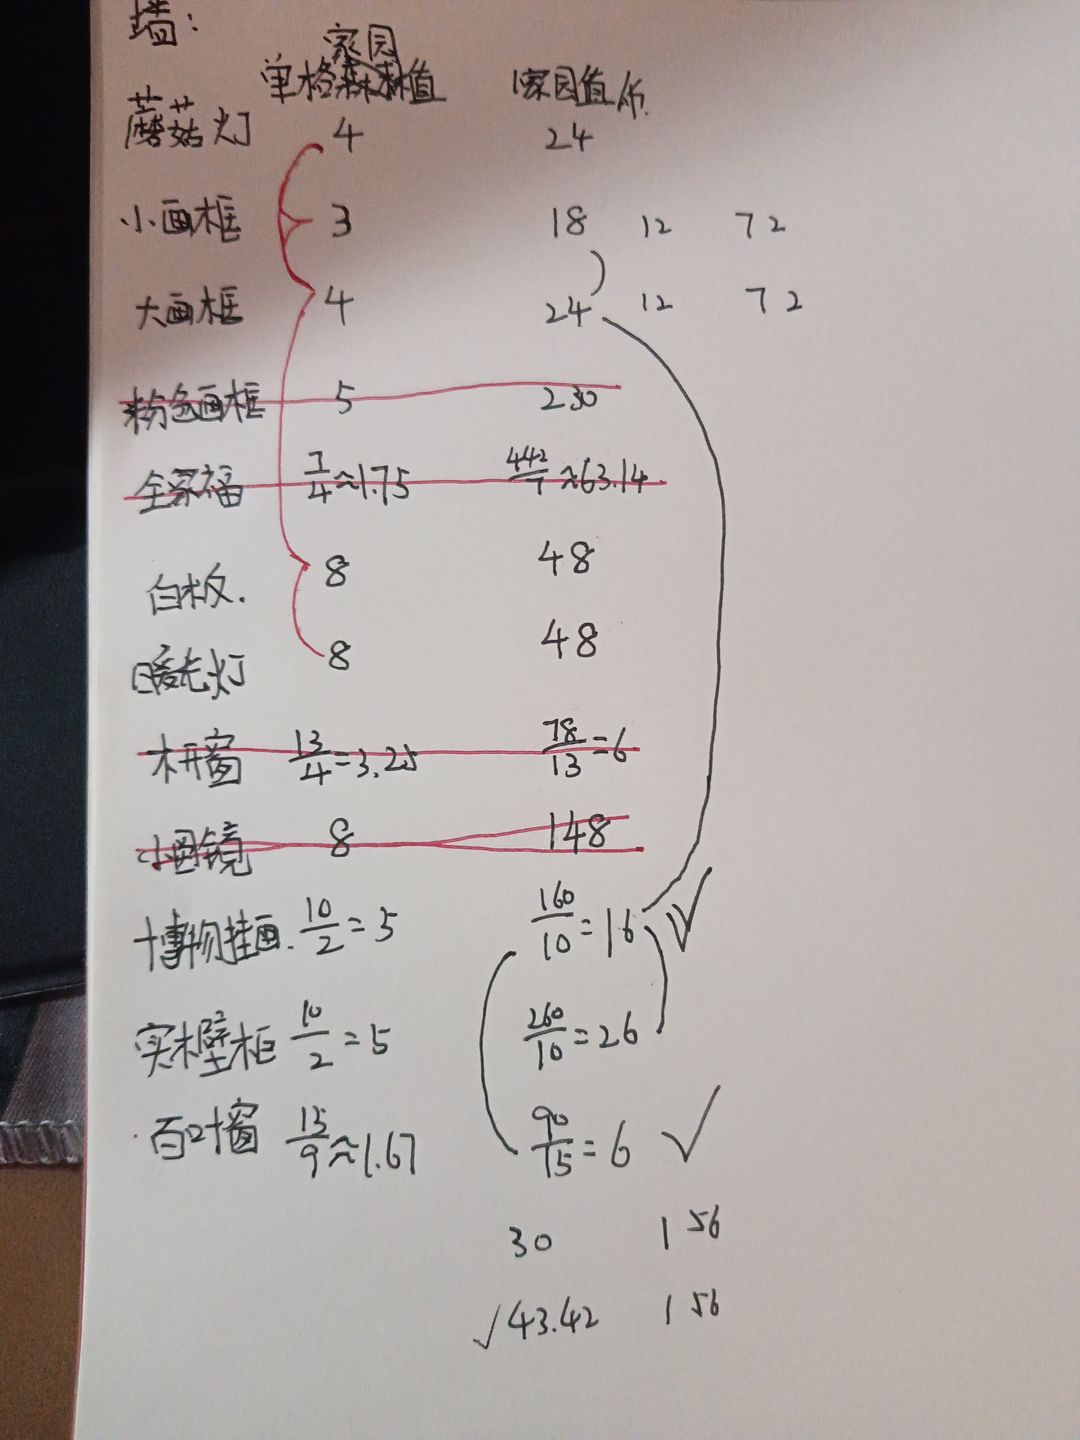 墙:
家园
单格 值 1家园值/币
蘑菇灯 4 24
小画框 3 18 12 72
大画框 4 24 12 72
粉色画框 5 230
全家福 7/4≈1.75 442/7≈63.14
白板. 8 48
暖光灯 8 48
木开窗 13/4=3.25 78/13=6
小圆镜 8 148
博物挂画. 10/2=5 160/10=16 √
实木壁柜 10/2=5 260/10=26
百叶窗 15/9≈1.67 90/15=6 √
30 156
√43.42 156